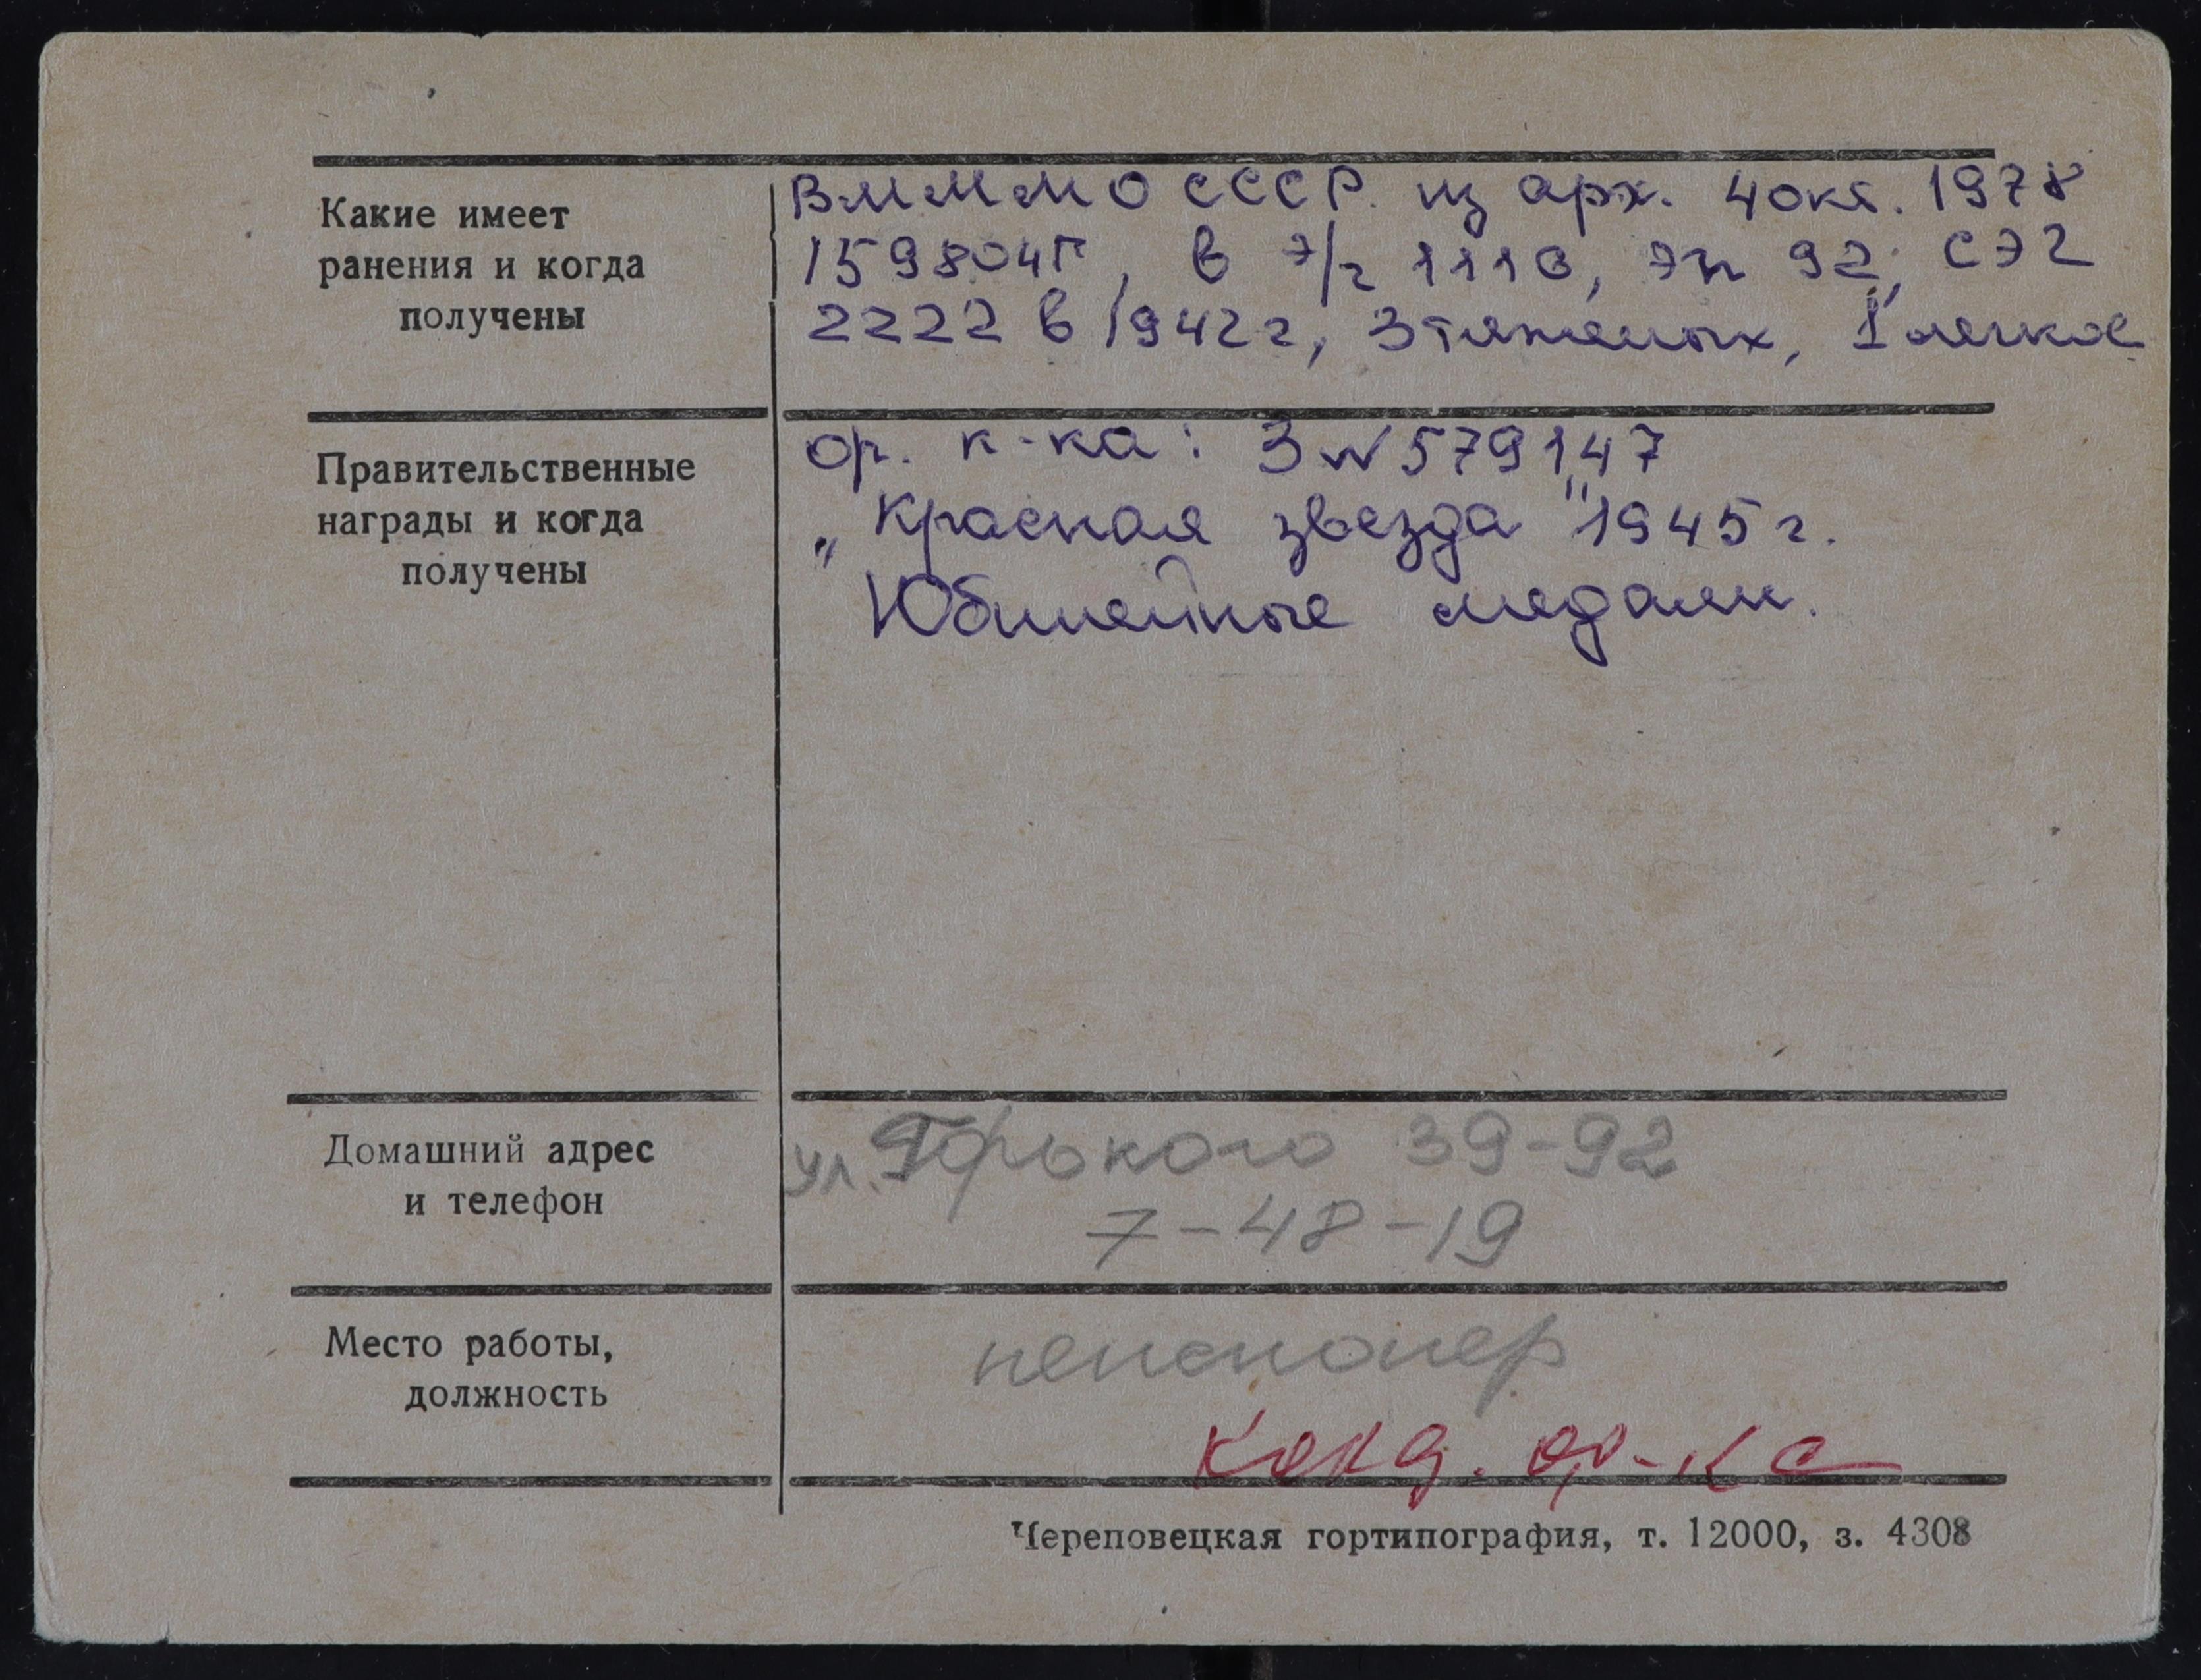 Какие имеет
ранения и когда
получены
ВММ МО СССР. из арх. 4 окт. 1978
159804П, в э/г 1110, эп 92, СЭГ
2222 в 1942г, 3 тяжелых, 1 легкое
Правительственные
награды и когда
получены
ор. к-ка: З № 579147
„Красная звезда" 1945 г.
Юбилейные медали.
Домашний адрес
и телефон
ул. Горького 39-92
7-48-19
Место работы,
должность
пенсионер
Череповецкая гортипография, т. 12000, з. 4308